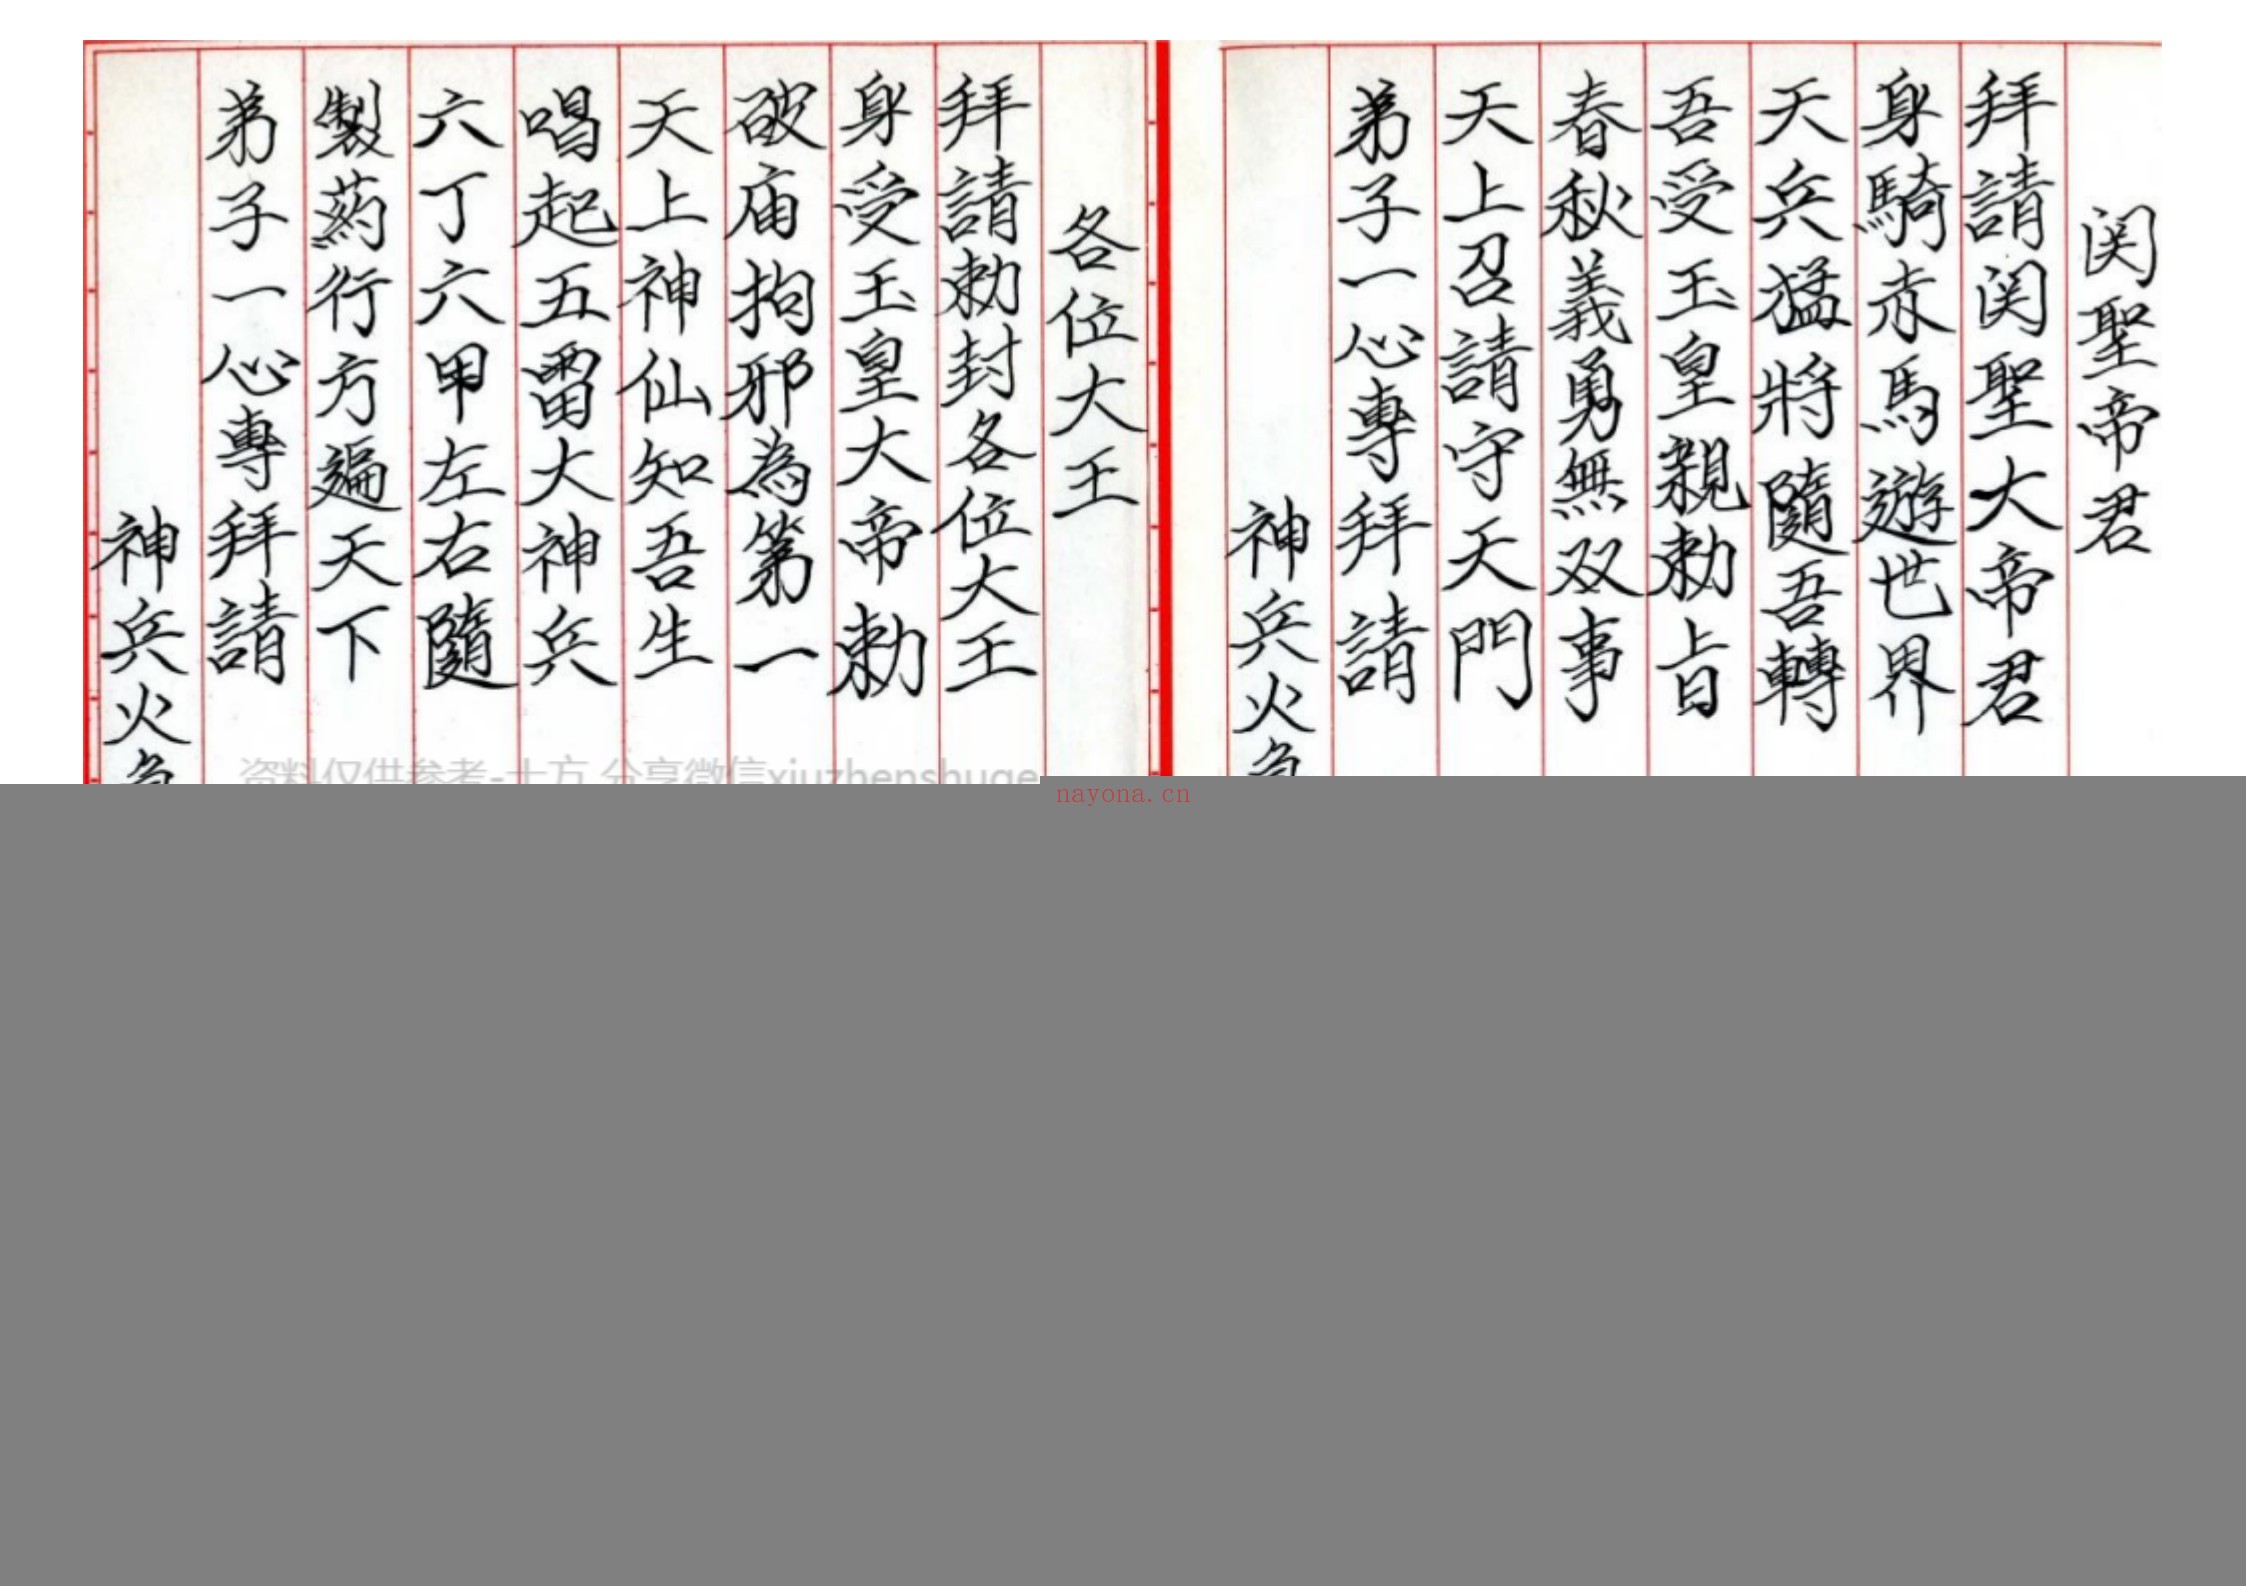 関聖帝君
拜請関聖大帝君
身騎赤馬遊世界
天兵猛將隨吾轉
吾受玉皇親勅旨
春秋義勇無双事
天上召請守天門
弟子一心專拜請
神兵火急
各位大王
拜請勅封各位大王
身受玉皇大帝勅
破庙拘邪為第一
天上神仙知吾生
唱起五雷大神兵
六丁六甲左右隨
製药行方遍天下
弟子一心專拜請
神兵火急
资料仅供参考-十方 分享微信xiuzhenshuge
nayona.cn